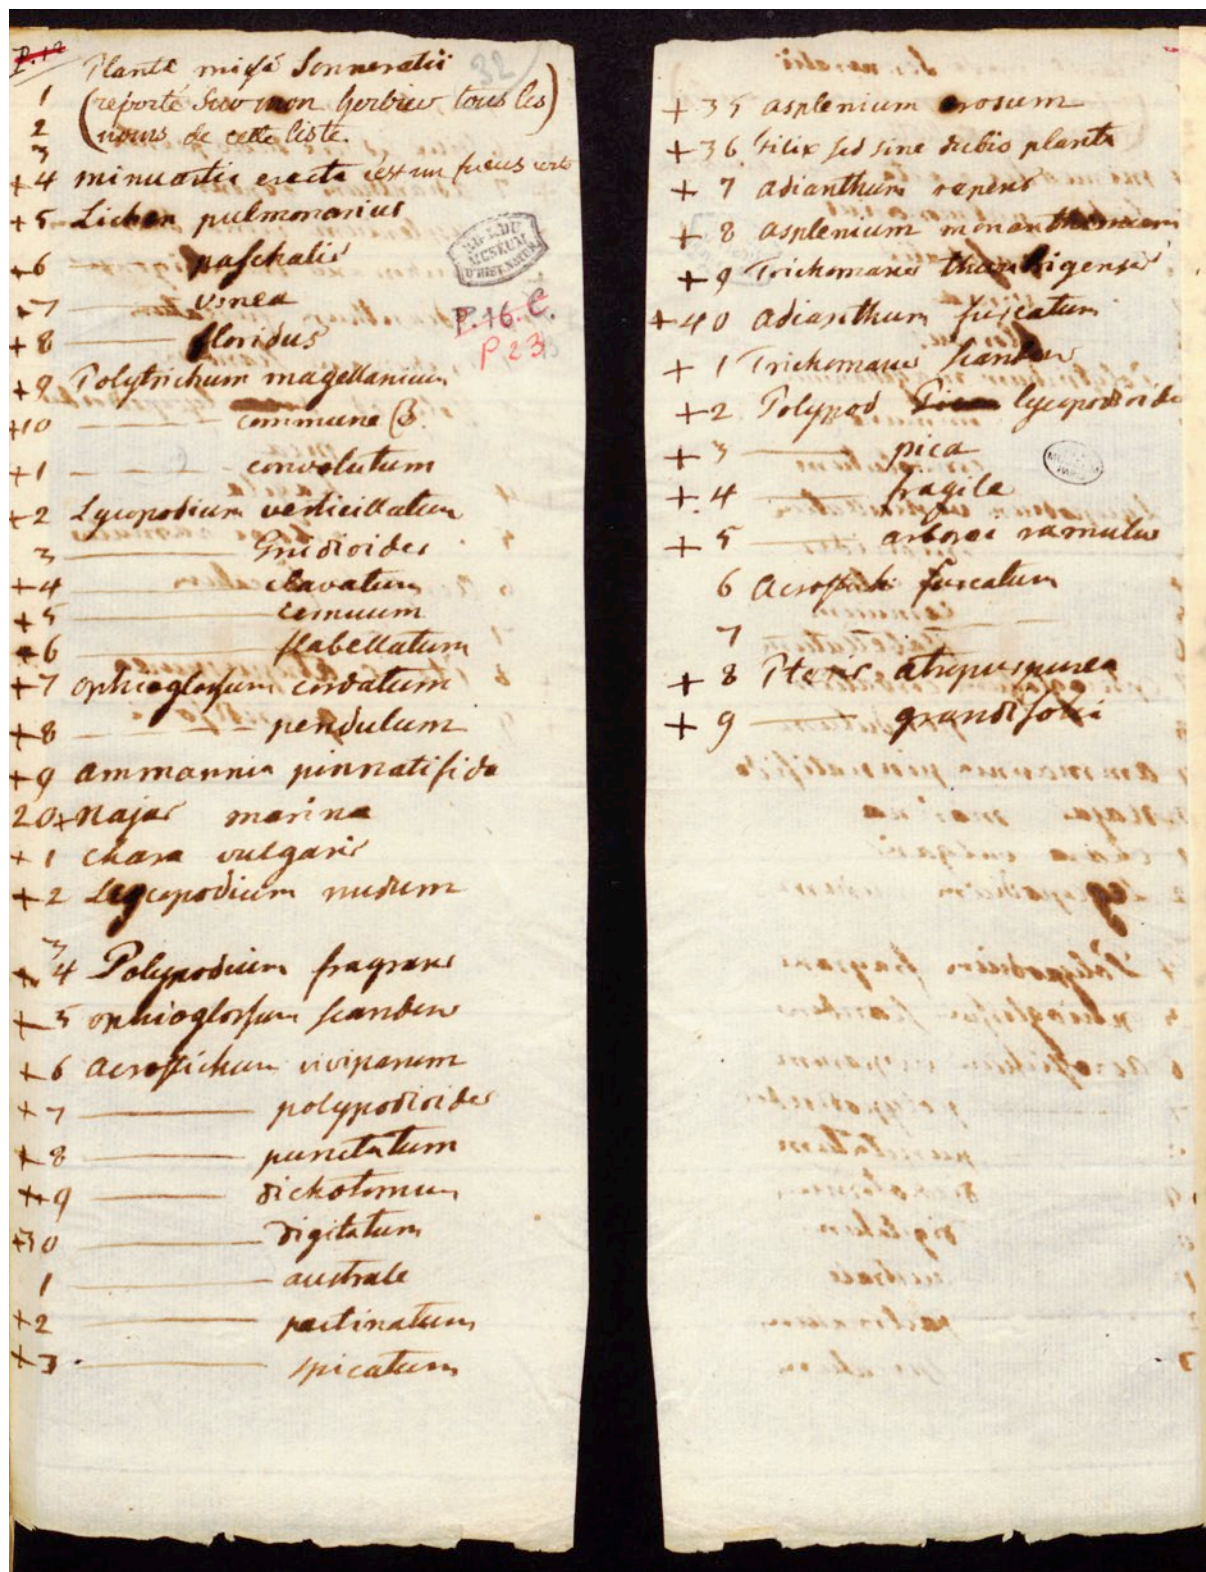 P.12
32
Planta missa Sonneratii
1 (reporté sur mon herbier tous les)
2 (noms de cette liste.
3
+4 minuartia erecta c'est un fucus
+5 Lichen pulmonarius
+6 —— paschalis
+7 —— usnea
+8 —— floridus
BIBL. DU MUSEUM D'HIST. NAT.
P. 16. C.
P 23
+9 Polytrichum magellanicum
+10 —— commune β.
+1 —— convolutum
+2 Lycopodium verticillatum
3 —— Gnidioides
+4 —— clavatum
+5 —— cernuum
+6 —— flabellatum
+7 ophioglossum cordatum
+8 —— pendulum
+9 ammannia pinnatifida
20+ najas marina
+1 chara vulgaris
+2 Lycopodium nudum
3
+4 Polypodium fragrans
+5 ophioglossum scandens
+6 acrostichum viviparum
+7 —— polypodioides
+8 —— punctatum
+9 —— dichotomum
+30 —— digitatum
1 —— australe
+2 —— pectinatum
+3 · —— spicatum
+35 asplenium erosum
+36 filix sed sine dubio planta
+7 adianthum repens
+8 asplenium monanthemum
+9 Trichomanes
+40 adianthum furcatum
+1 Trichomanes scandens
+2 Polypod lycopodioides
+3 —— pica
+4 —— fragile
+5 —— arborei ramulus
6 acrostich furcatum
7 ——
+8 Pteris atropurpurea
+9 —— grandifolia